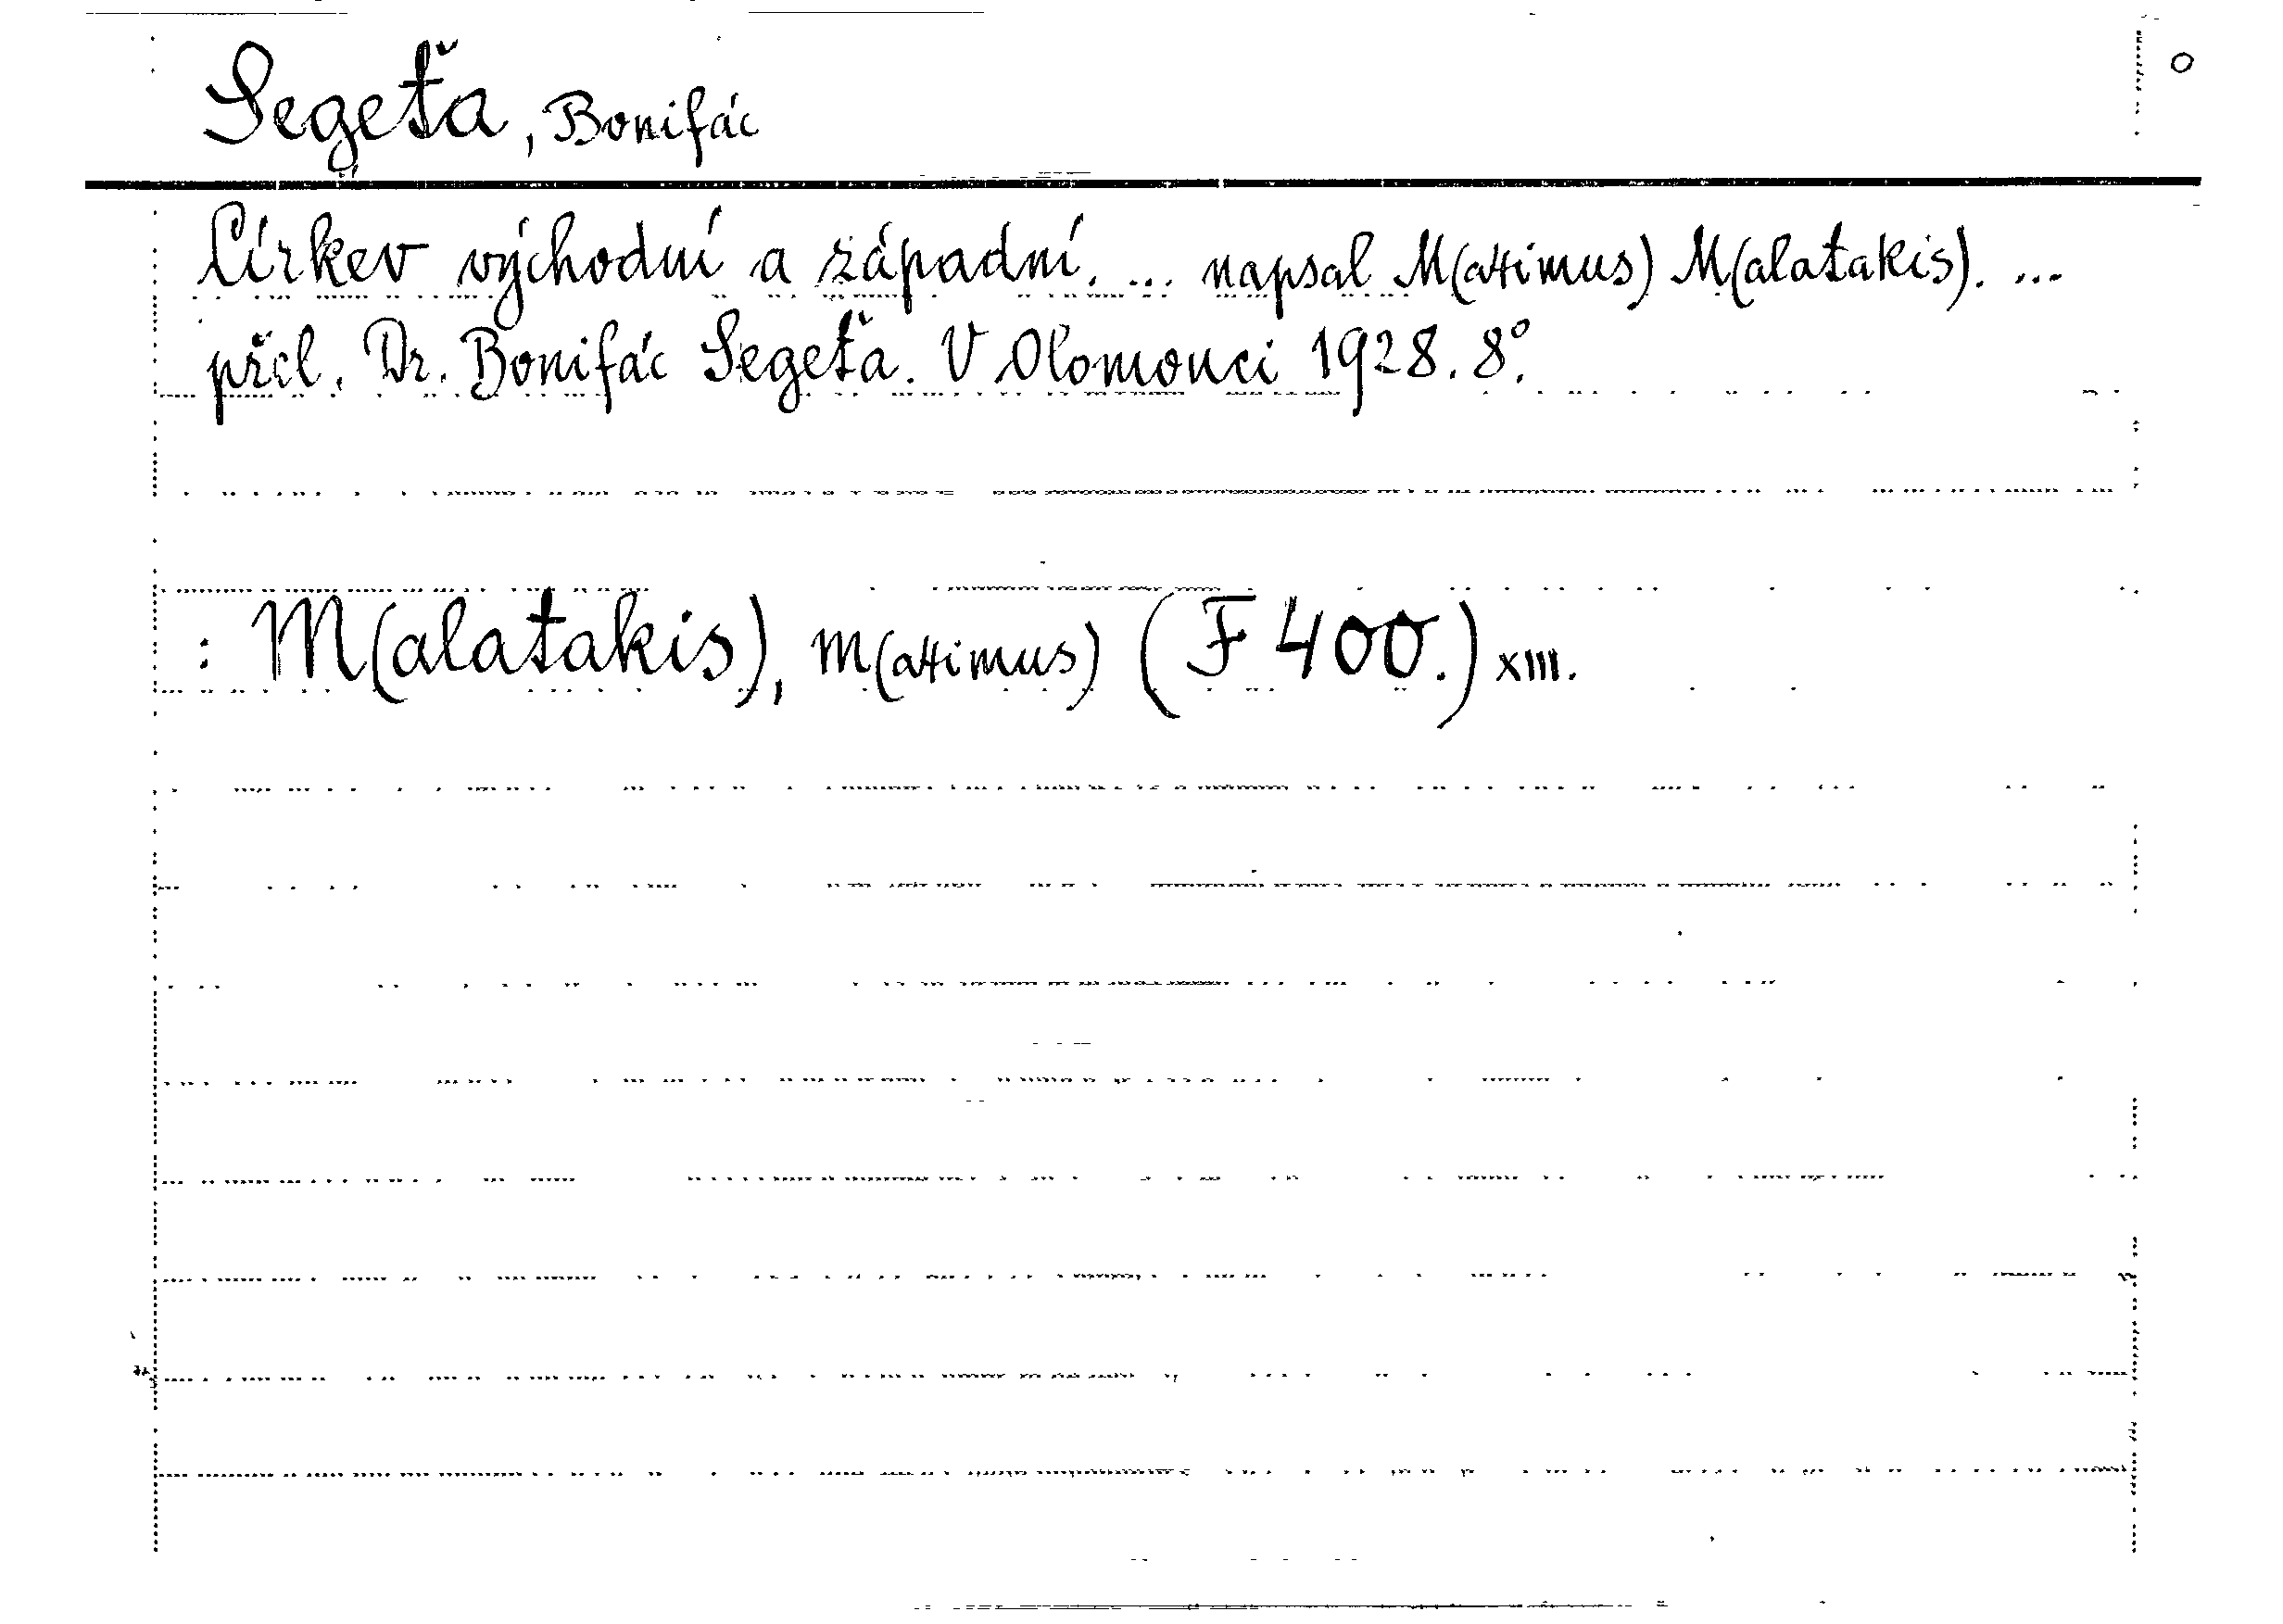 Segeťa, Bonifác
Církev východní a západní. ... napsal M(aximus) M(alatakis). ...
přel. Dr. Bonifác Segeťa. V Olomouci 1928. 8°.
: M(alatakis), M(aximus) (F 400.) XIII.